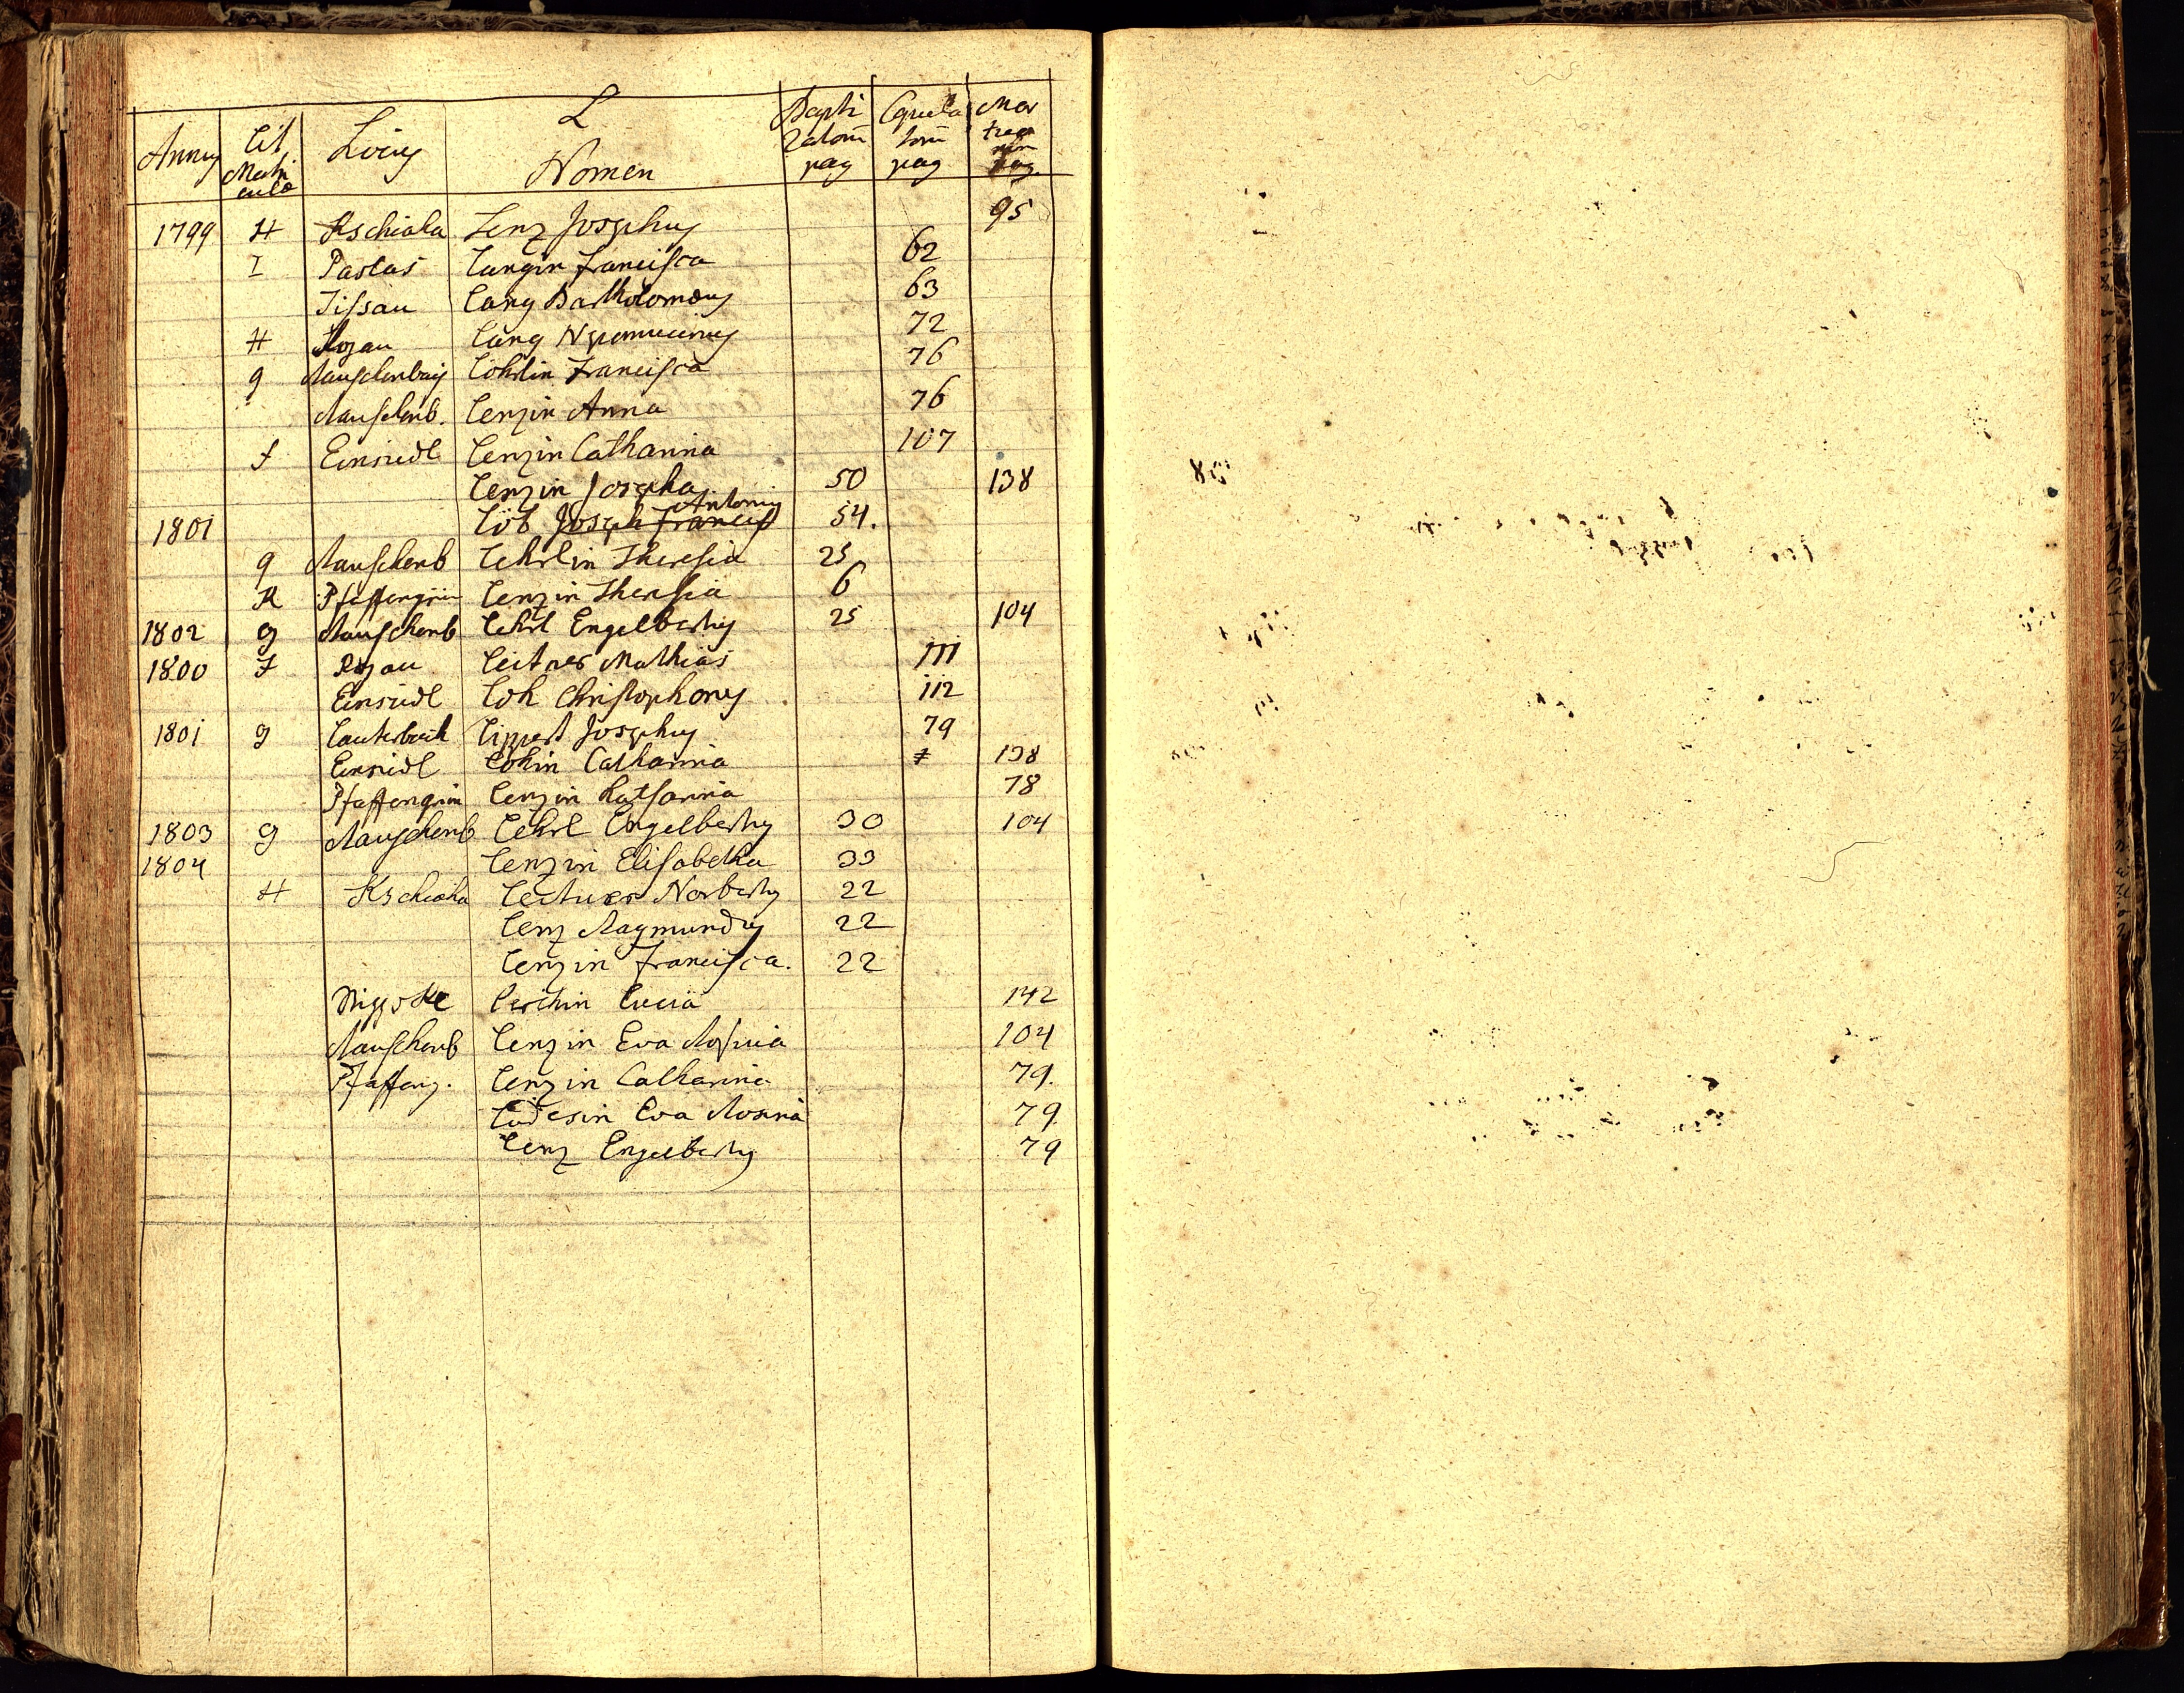 L
Annus Lit. Matriculae Locus Nomen Baptizatorum pag Copulatorum pag Mortuorum pag.
1799 H Kschiaha Lenz Josephus 95
I Paslas Langin Francisca 62
Tissau Lang Bartholomaeus 63
H Rojau Lang Nepomucenus 72
g Rauschenbach Löhrlin Francisca 76
Rauschenb. Lenzin Anna 76
f Einsiedl Lenzin Catharina 107
Lenzin Josepha 50 138
Antonius
1801 Löb Joseph Francis 54.
g Rauschenb Lehrlin Theresia 25
K Pfaffengrün Lenzin Theresia 6
1802 g Rauschenb Lehrl Engelbertus 25 104
1800 F Rojau Leitner Mathias 111
Einsiedl Loh Christophorus 112
1801 g Lauterbach Lippert Josephus 79
Einsiedl Lohin Catharina 138
Pfaffengrün Lenzin Katharina 78
1803 g Rauschenb Lehrl Engelbertus 30 104
1804 Lenzin Elisabetha 33
H Kschiaha Leitner Norbertus 22
Lenz Raymundus 22
Lenzin Francisca. 22
Lucia 142
Rauschenb Lenzin Eva Rosina 104
Pfaffeng. Lenzin Catharina 79.
Eva Rosina 79
Lenz Engelbertus 79